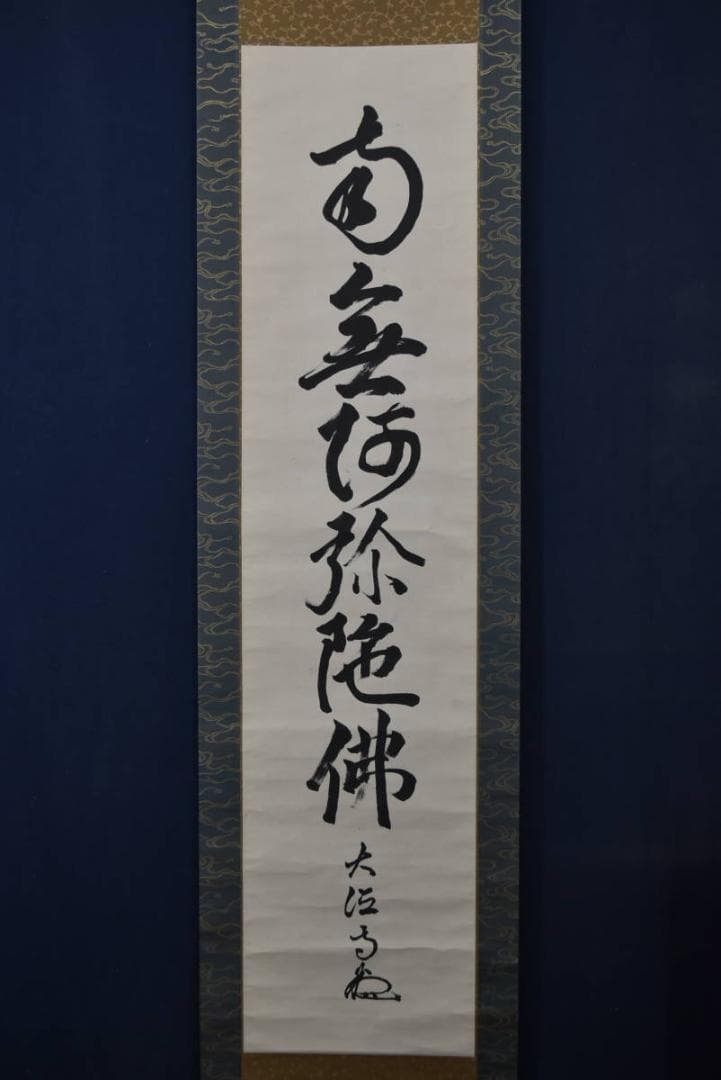 南無阿弥陀佛
大